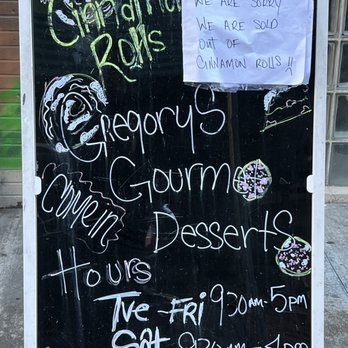 Cinnamon
Rolls
WE ARE SORRY
WE ARE SOLD
OUT OF
CINNAMON ROLLS !!
GREGORYS
GOURMe
COME IN
DessertS
Hours
Tue - FRi 930AM-5PM
Sat 930AM-4PM